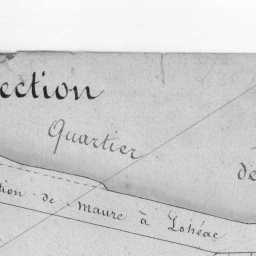 ection
Quartier
de
tion de maure à Lohéac